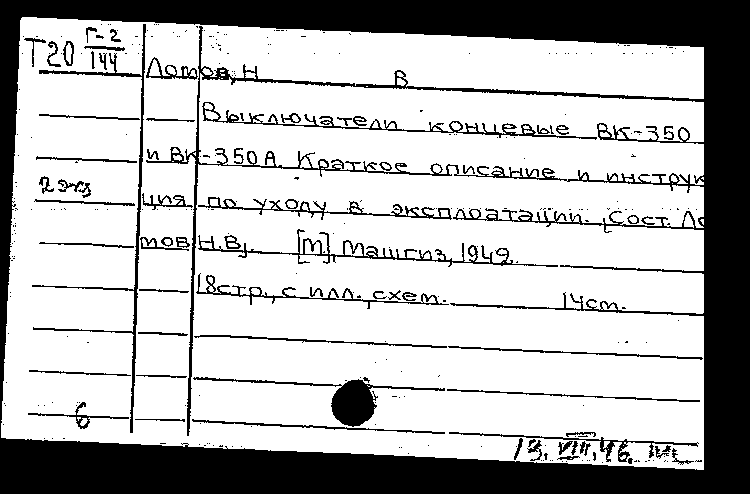 Т20 Г-2/144
Лотов, Н В
Выключатели концевые ВК-350
и ВК-350А. Краткое описание и инструк
2 экз
ция по уходу в эксплоатации. [Сост. Ло
тов Н.В]. [М], Машгиз, 1949.
18стр., с илл., схем. 14см.
6
13. VIII. 46.